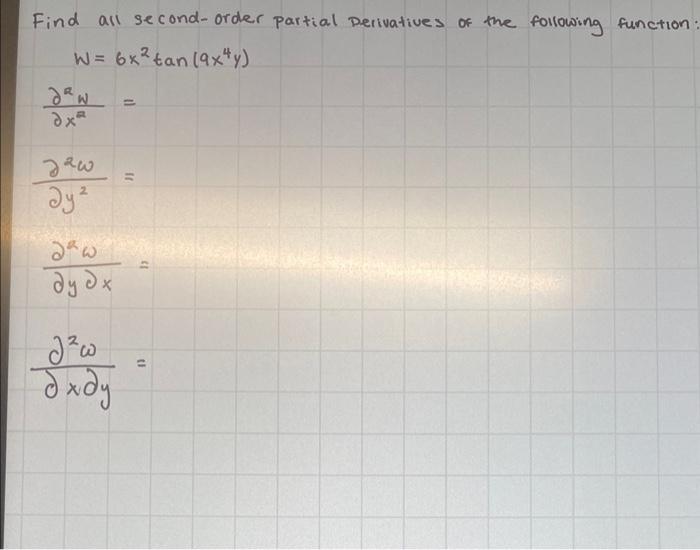 Find all second-order partial Derivatives of the following function:
W = 6x² tan(9x⁴y)
∂²w/∂x² =
∂²w/∂y² =
∂²w/∂y∂x =
∂²w/∂x∂y =